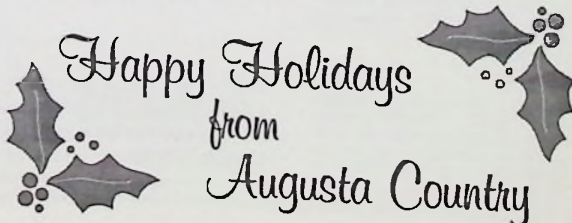 Happy Holidays
from
Augusta Country